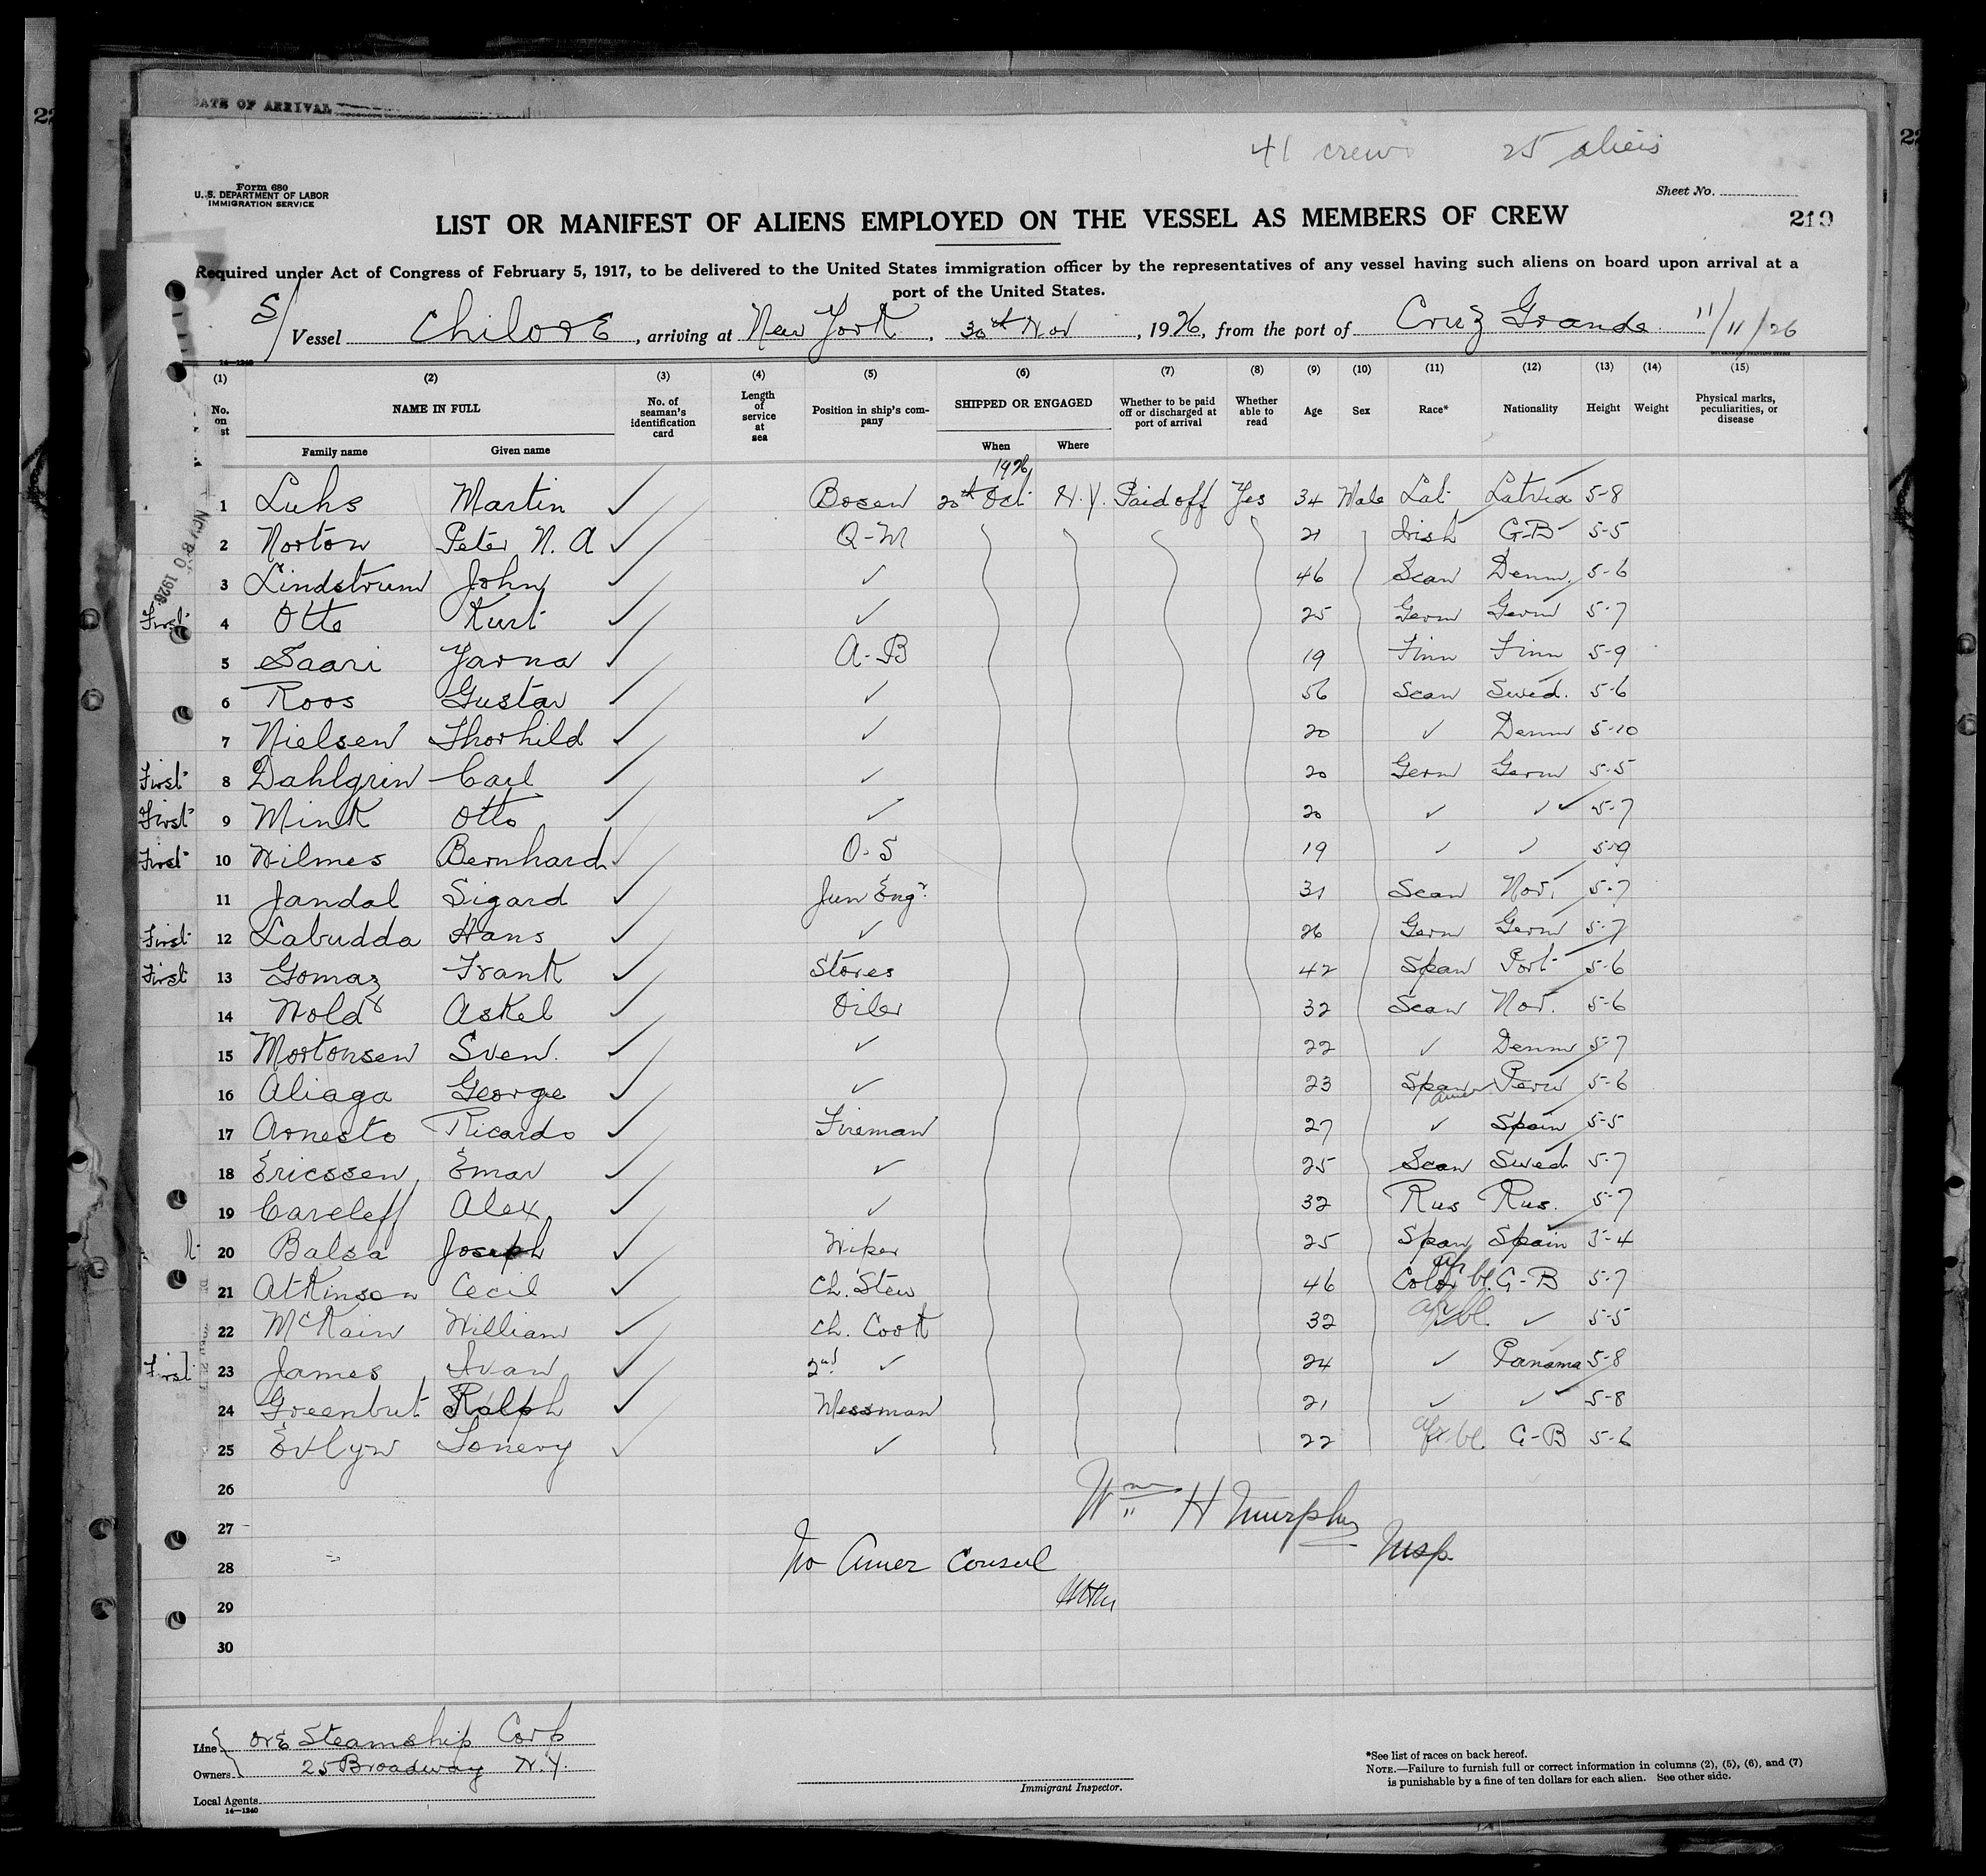 DATE OF ARRIVAL
41 crew 25 aliens
Form 680
U. S. DEPARTMENT OF LABOR
IMMIGRATION SERVICE
Sheet No.
LIST OR MANIFEST OF ALIENS EMPLOYED ON THE VESSEL AS MEMBERS OF CREW
219
Required under Act of Congress of February 5, 1917, to be delivered to the United States immigration officer by the representatives of any vessel having such aliens on board upon arrival at a
port of the United States.
S/ Vessel Chilore, arriving at New York, 30th Nov, 1926, from the port of Cruz Grande 11/11/26
14—1240
(1) (2) (3) (4) (5) (6) (7) (8) (9) (10) (11) (12) (13) (14) (15)
No. on st NAME IN FULL No. of seaman's identification card Length of service at sea Position in ship's company SHIPPED OR ENGAGED Whether to be paid off or discharged at port of arrival Whether able to read Age Sex Race* Nationality Height Weight Physical marks, peculiarities, or disease
Family name Given name When Where
1926
1 Luhs Martin ✓ Bosen 20th Oct N.Y. Paid off Yes 34 Male Lat Latvia 5-8
2 Norton Peter N. A ✓ Q-M 21 Irish G-B 5-5
3 Lindstrum John ✓ ✓ 46 Scan Denm. 5-6
First 4 Otto Kurt ✓ ✓ 25 Germ Germ 5-7
5 Saari Yarna ✓ A-B 19 Finn Finn 5-9
6 Roos Gustav ✓ ✓ 56 Scan Swed. 5-6
7 Nielsen Thorhild ✓ ✓ 20 ✓ Denm 5-10
First 8 Dahlgrin Carl ✓ ✓ 20 Germ Germ 5-5
First 9 Mink Otto ✓ ✓ 20 ✓ ✓ 5-7
First 10 Wilmes Bernhard ✓ O-S 19 ✓ ✓ 5-9
11 Jandal Sigard ✓ Jun Engr. 31 Scan Nor. 5-7
First 12 Labudda Hans ✓ ✓ 26 Germ Germ 5-7
First 13 Gomaz Frank ✓ Stores 42 Span Port 5-6
14 Wold Askel ✓ Oiler 32 Scan Nor. 5-6
15 Mortonsen Sven. ✓ ✓ 22 ✓ Denm 5-7
16 Aliaga George ✓ ✓ 23 Span Amer Peru 5-6
17 Arnesto Ricardo ✓ Fireman 27 ✓ Spain 5-5
18 Ericssen Emar ✓ ✓ 25 Scan Swed 5-7
19 Careleff Alex ✓ ✓ 32 Rus Rus. 5-7
20 Balsa Joseph ✓ Wiper 25 Span Spain 5-4
21 Atkinson Cecil ✓ Ch. Stew 46 Cold afr bl. G-B 5-7
22 McKain William ✓ Ch. Cook 32 afr bl. ✓ 5-5
First 23 James Ivan ✓ 2nd ✓ 24 ✓ Panama 5-8
24 Greenbut Ralph ✓ Messman 21 ✓ ✓ 5-8
25 Evlyn Tonery ✓ ✓ 22 afr bl. G-B 5-6
26
27
28
29
30
Wm H Murphy
Insp.
No Amer Consul
WHM
Line Ore Steamship Corp
Owners 25 Broadway N.Y.
Local Agents
14—1240
Immigrant Inspector.
*See list of races on back hereof.
NOTE.—Failure to furnish full or correct information in columns (2), (5), (6), and (7)
is punishable by a fine of ten dollars for each alien. See other side.